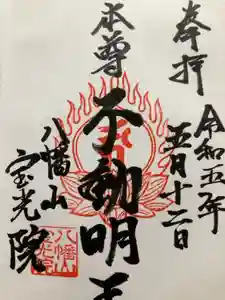 奉拝
令和五年
五月十二日
本尊
不動明王
八幡山
宝光院